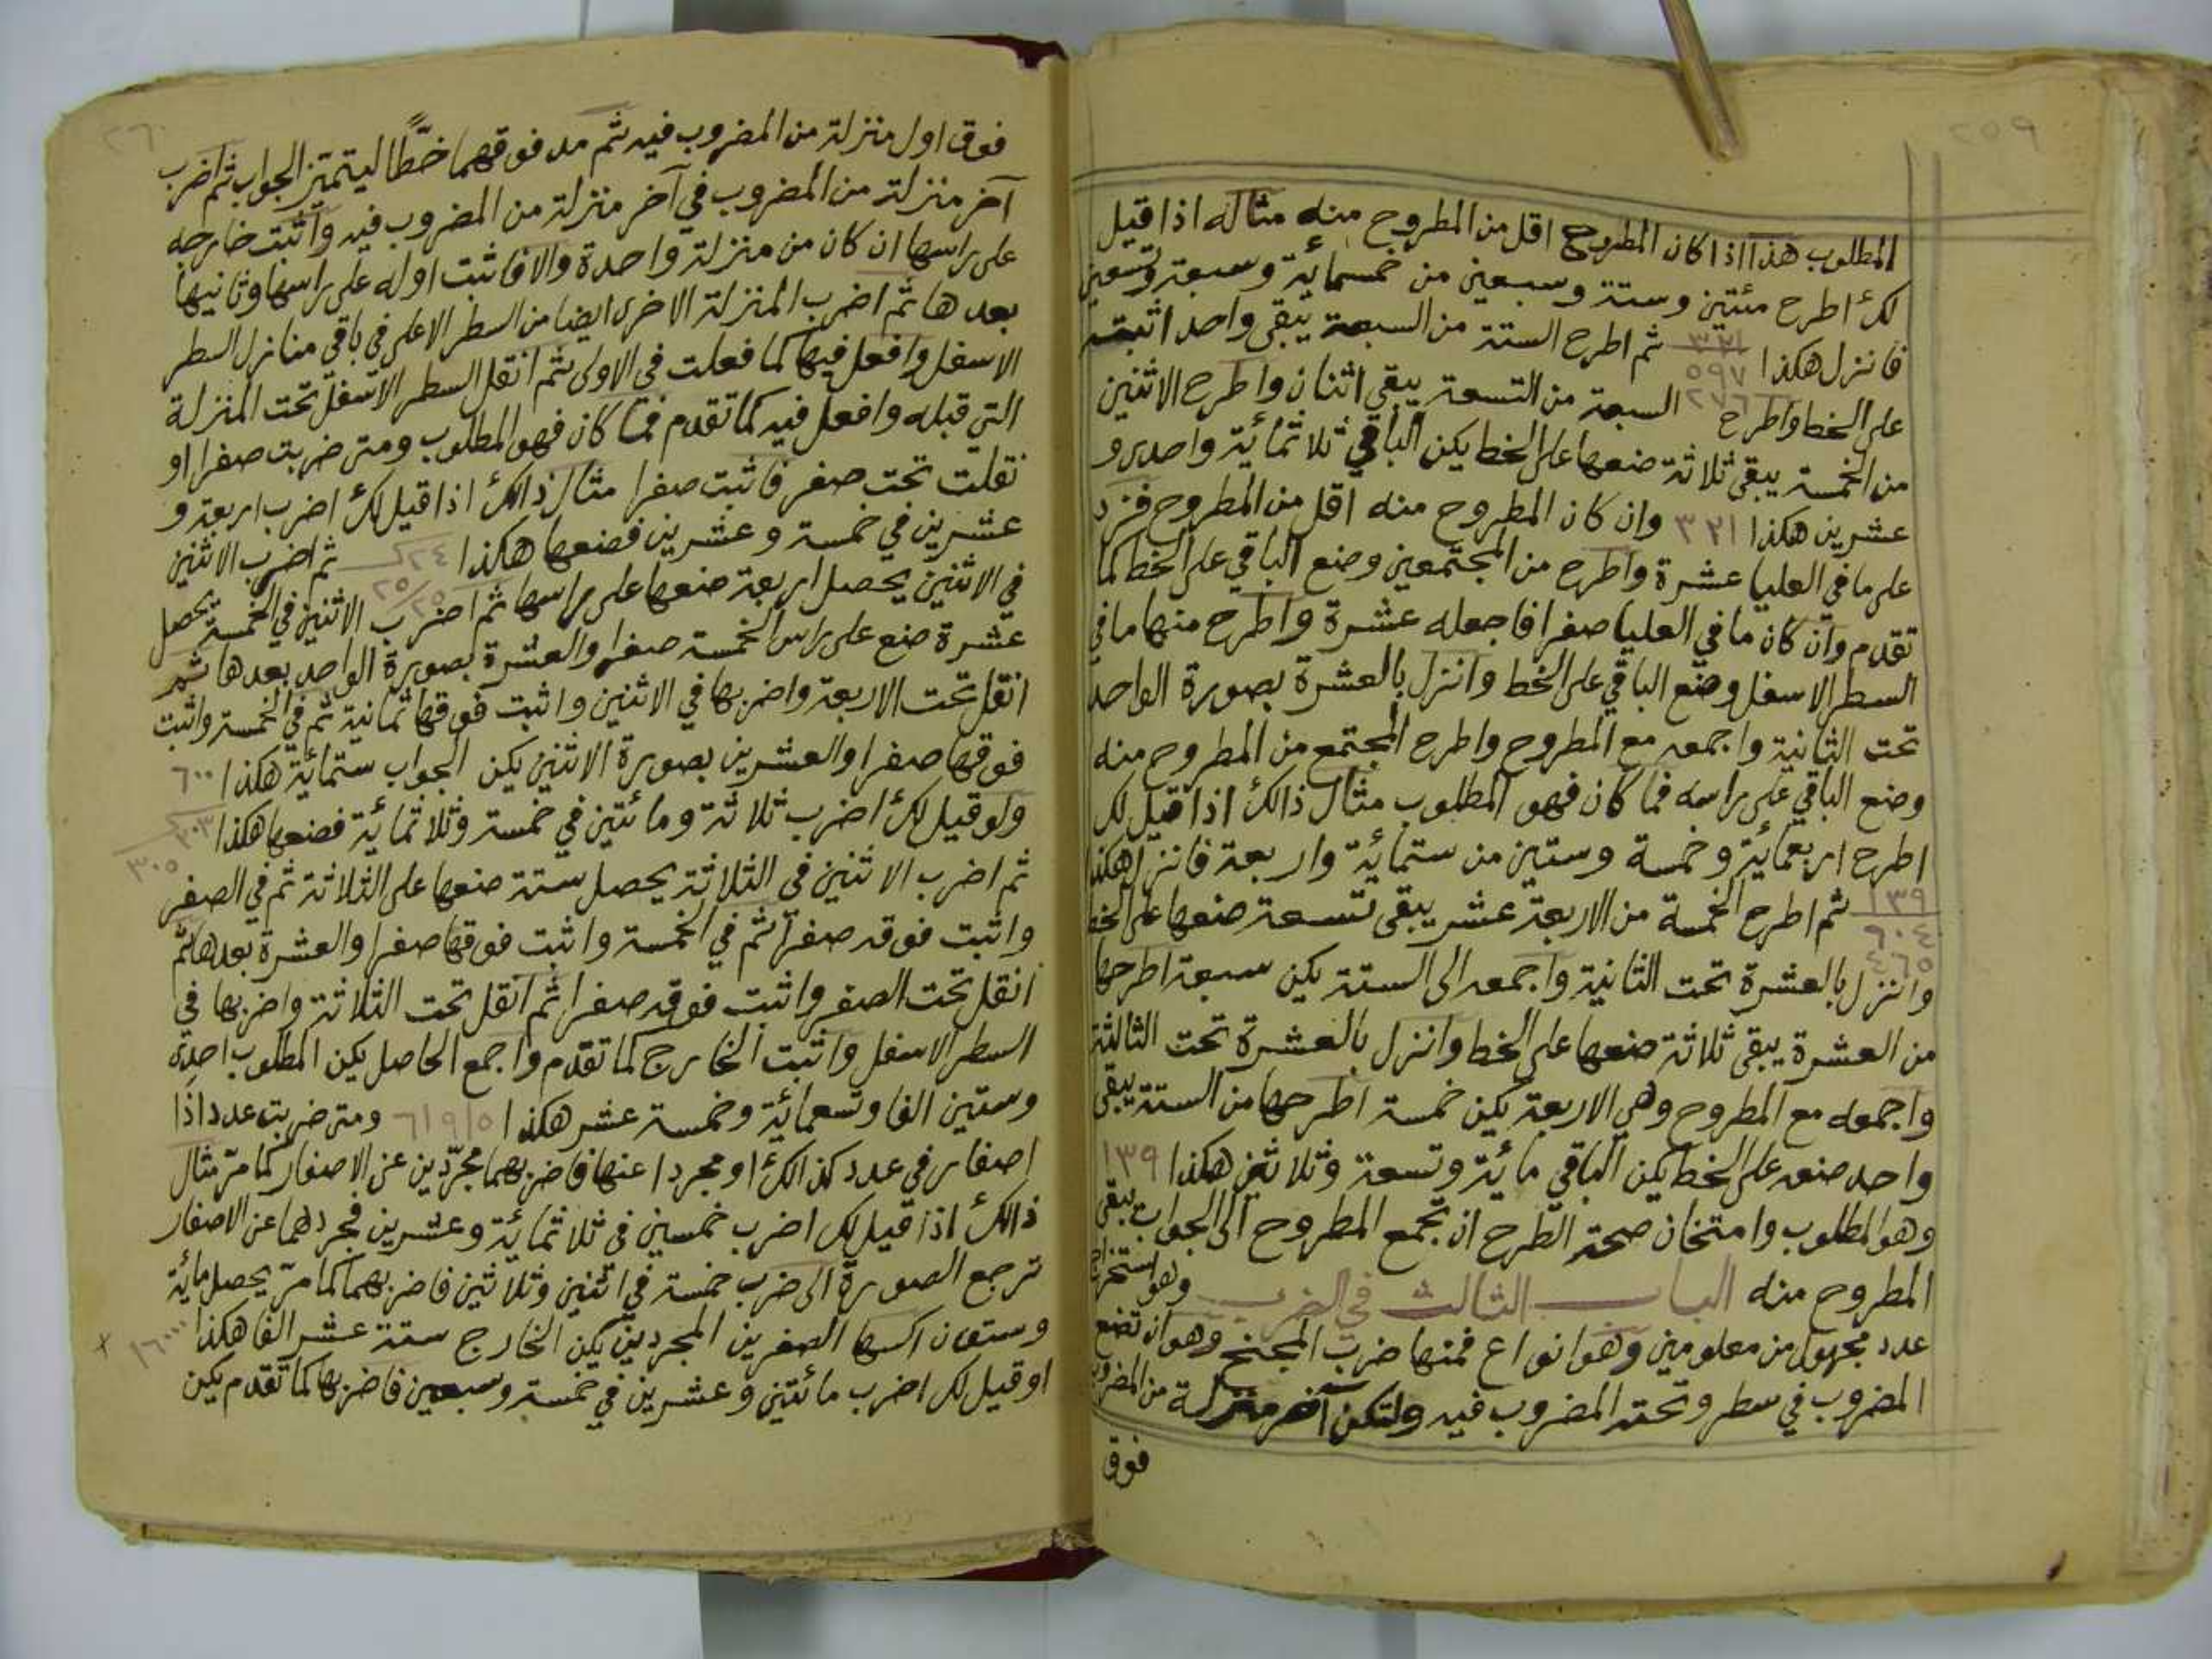 ٢٥٩
المطلوب هذا اذا كان المطروح اقل من المطروح منه مثاله اذا قيل
لك اطرح مئتين وستة وسبعين من خمسمائة وسبعة وتسعين
فانزل هكذا ٣٢١ ٥٩٧ ٢٧٦ ثم اطرح الستة من السبعة يبقى واحد اثبته
على الخط واطرح السبعة من التسعة يبقى اثنان واطرح الاثنين
من الخمسة يبقى ثلاثة ضعها على الخط يكن الباقي ثلاثمائة واحدى و
عشرين هكذا ٣٢١ وان كان المطروح منه اقل من المطروح فزد
على ما في العليا عشرة واطرح من المجتمعين وضع الباقي على الخط كما
تقدم وان كان ما في العليا صفرا فاجعله عشرة واطرح منها ما في
السطر الاسفل وضع الباقي على الخط وانزل بالعشرة بصورة الواحد
تحت الثانية واجمعه مع المطروح واطرح المجتمع من المطروح منه
وضع الباقي على راسه فما كان فهو المطلوب مثال ذالك اذا قيل لك
اطرح اربعمائة وخمسة وستين من ستمائة واربعة فانزل هكذا
١٣٩ ٦٠٤ ٤٦٥ ثم اطرح الخمسة من الاربعة عشر يبقى تسعة ضعها على الخط
وانزل بالعشرة تحت الثانية واجمعه الى الستة يكن سبعة اطرحها
من العشرة يبقى ثلاثة ضعها على الخط وانزل بالعشرة تحت الثالثة
واجمعه مع المطروح وهي الاربعة يكن خمسة اطرحها من الستة يبقى
واحد ضعه على الخط يكن الباقي مائة وتسعة وثلاثين هكذا ١٣٩
وهو المطلوب وامتحان صحة الطرح ان تجمع المطروح الى الجواب يبقى
المطروح منه الباب الثالث في الضرب وهو استخراج
عدد مجهول من معلومين وهو انواع فمنها ضرب المجنح وهو ان تضع
المضروب في سطر وتحته المضروب فيه ولتكن آخر منزلة من المضروب
فوق
٢٦٠
فوق اول منزلة من المضروب فيه ثم مد فوقهما خطًّا ليتميز الجواب ثم اضرب
آخر منزلة من المضروب في آخر منزلة من المضروب فيه واثبت خارجه
على راسها ان كان من منزلة واحدة والا فاثبت اوله على راسها وثانيها
بعدها ثم اضرب المنزلة الاخرى ايضا من السطر الاعلى في باقي منازل السطر
الاسفل وافعل فيها كما فعلت في الاولى ثم انقل السطر الاسفل تحت المنزلة
التي قبله وافعل فيه كما تقدم فما كان فهو المطلوب ومتى ضربت صفرا او
نقلت تحت صفر فاثبت صفرا مثال ذالك اذا قيل لك اضرب اربعة و
عشرين في خمسة وعشرين فضعها هكذا ٢٤ ٢٥/٢٥ ثم اضرب الاثنين
في الاثنين يحصل اربعة ضعها على راسها ثم اضرب الاثنين في الخمسة يحصل
عشرة ضع على راس الخمسة صفرا والعشرة بصورة الواحد بعدها ثم
انقل تحت الاربعة واضربها في الاثنين واثبت فوقها ثمانية ثم في الخمسة واثبت
فوقها صفرا والعشرين بصورة الاثنين يكن الجواب ستمائة هكذا ٦٠٠
ولو قيل لك اضرب ثلاثة ومائتين في خمسة وثلاثمائة فضعها هكذا ٢٠٣ ٣٠٥
ثم اضرب الاثنين في الثلاثة يحصل ستة ضعها على الثلاثة ثم في الصفر
واثبت فوقه صفرا ثم في الخمسة واثبت فوقها صفرا والعشرة بعدها ثم
انقل تحت الصفر واثبت فوقه صفرا ثم انقل تحت الثلاثة واضربها في
السطر الاسفل واثبت الخارج كما تقدم واجمع الحاصل يكن المطلوب احدى
وستين الفا وتسعمائة وخمسة عشر هكذا ٦١٩١٥ ومتى ضربت عددا ذا
اصفار في عدد كذالك او مجردا عنها فاضربهما مجرّدين عن الاصفار كما مرّ مثال
ذالك اذا قيل لك اضرب خمسين في ثلاثمائة وعشرين فجردهما عن الاصفار
ترجع الصورة الى ضرب خمسة في اثنين وثلاثين فاضربهما كما مرّ يحصل مائة
وستون اكسها الصفرين المجردين يكن الخارج ستة عشر الفا هكذا ١٦٠٠٠
او قيل لك اضرب مائتين وعشرين في خمسة وسبعين فاضربها كما تقدم يكن